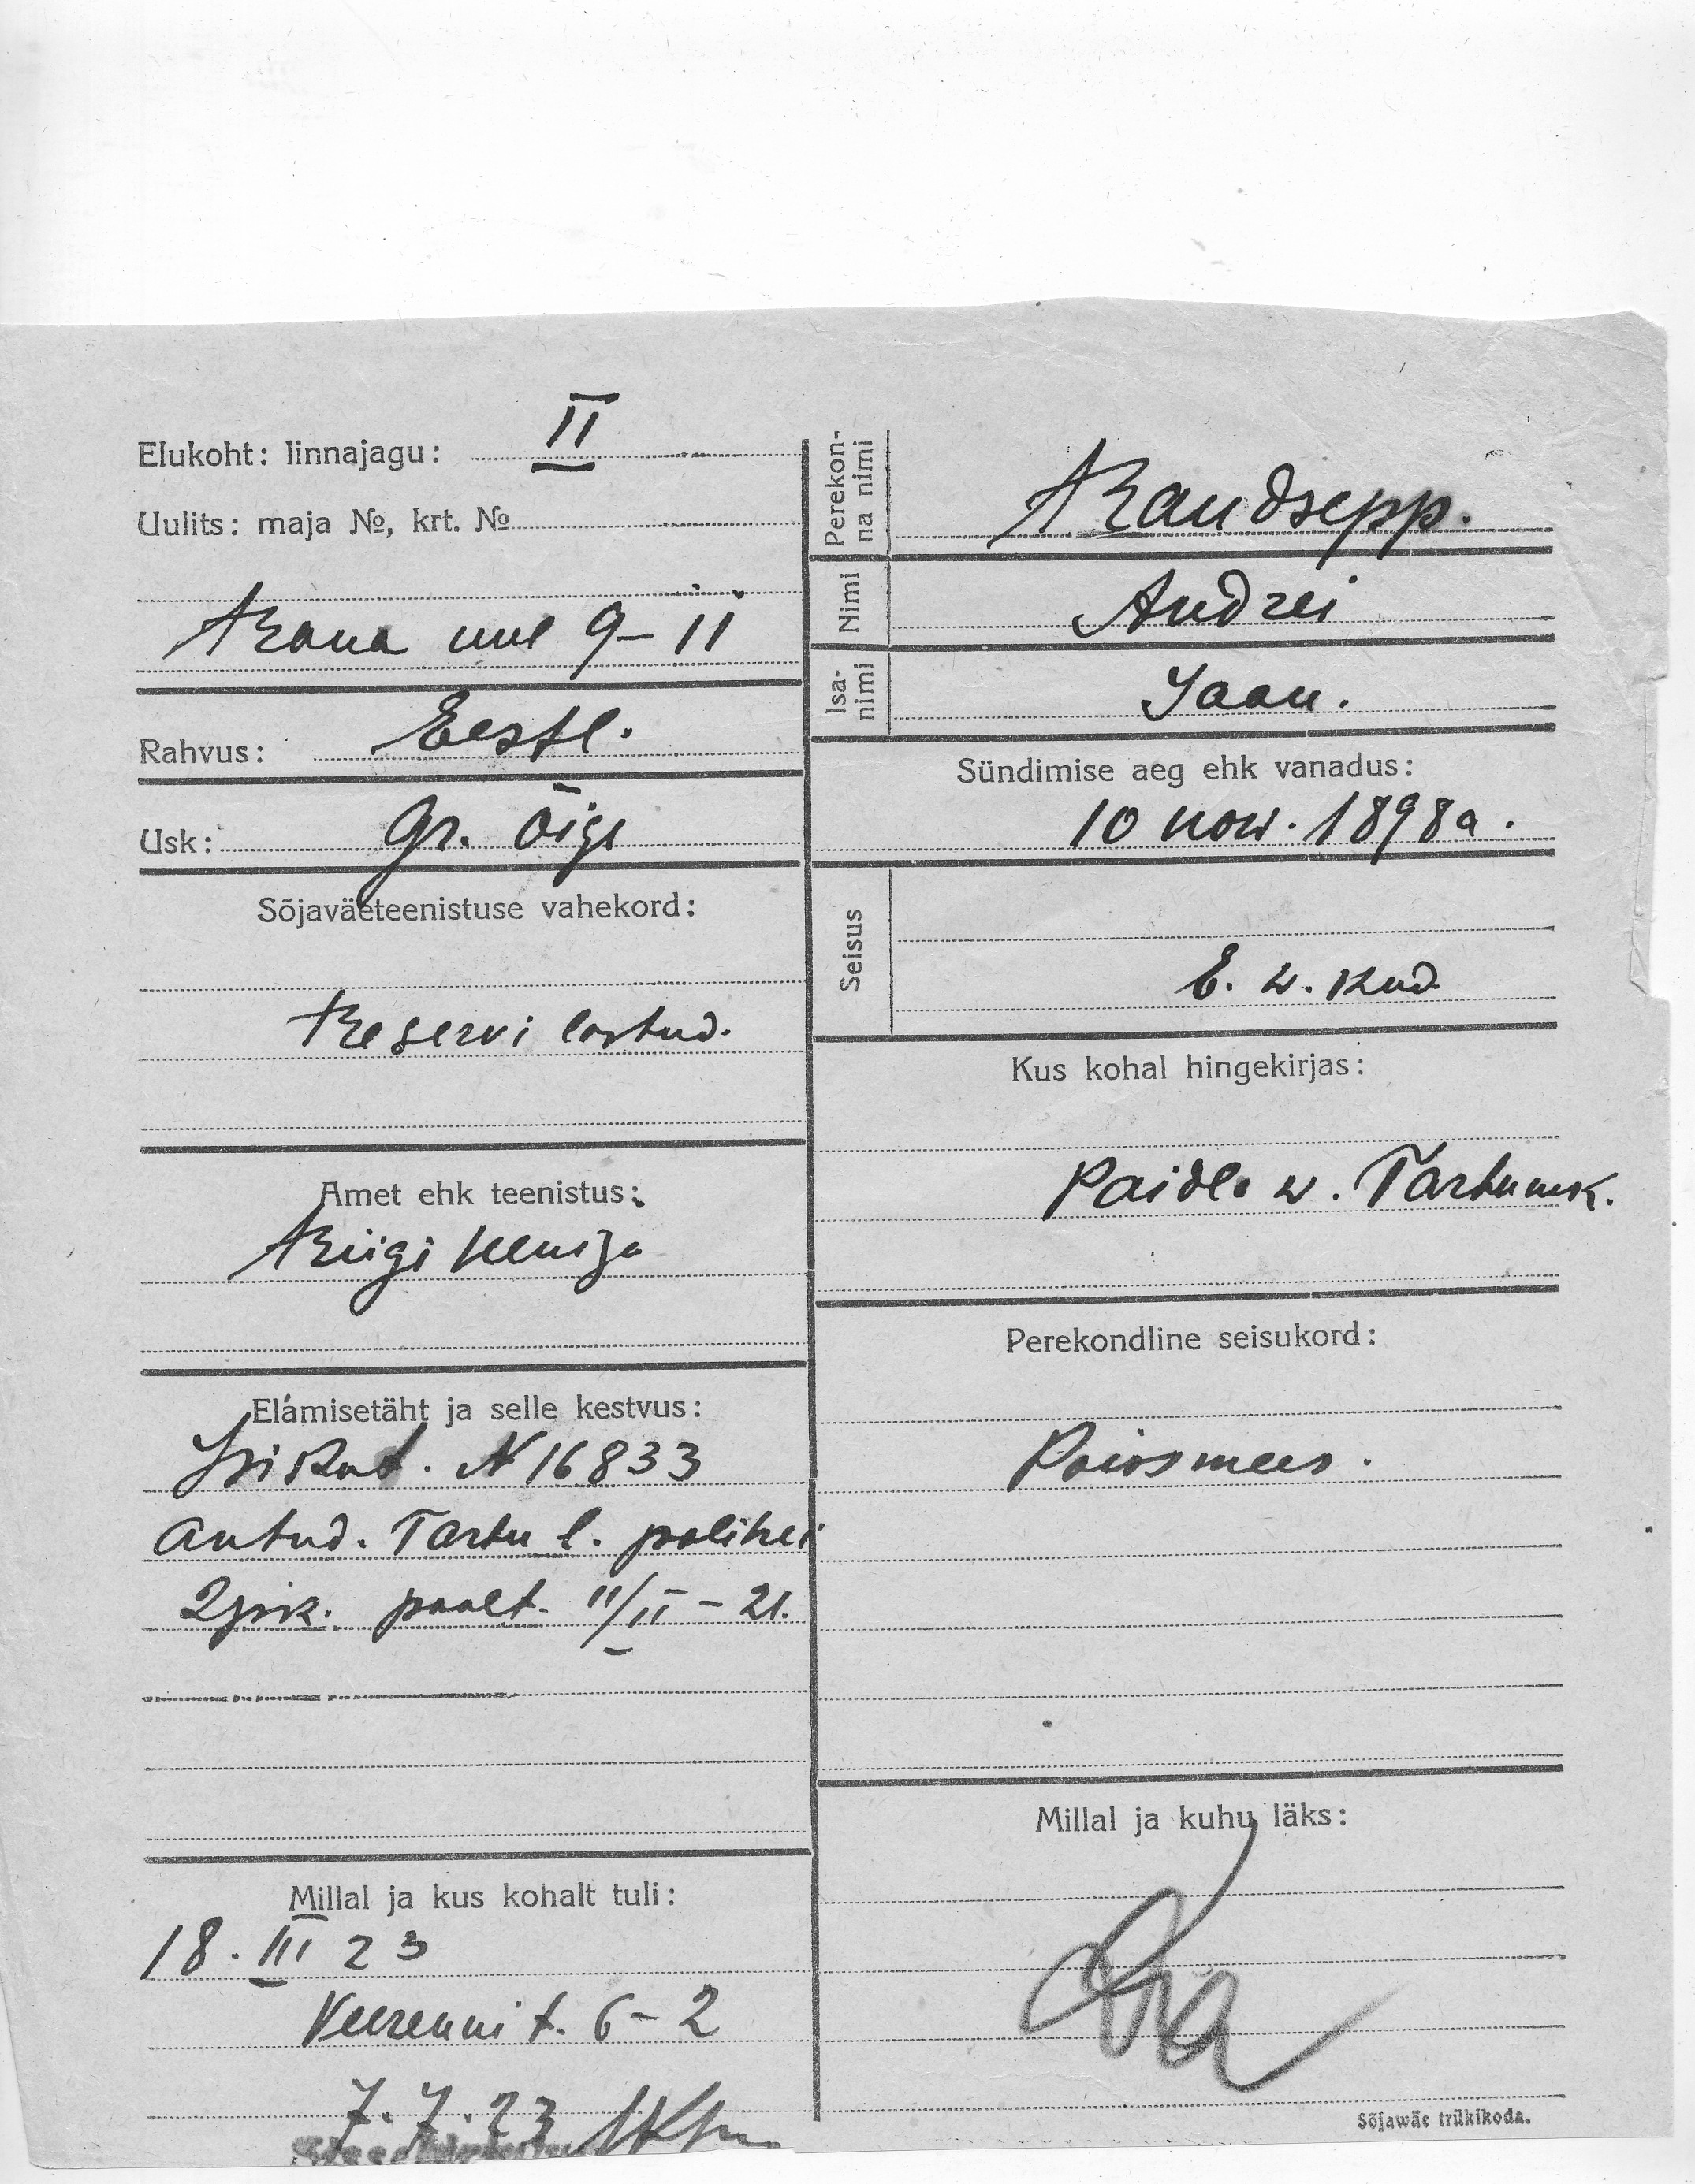 Elukoht: linnajagu: II
Uulits: maja №, krt. №
Rana uul 9-11
Rahvus: Eestl.
Usk: Gr. õige
Sõjaväeteenistuse vahekord:
Reservi lastud.
Amet ehk teenistus:
Riigi teenija
Elamisetäht ja selle kestvus:
Isikut. N 16833
Antud. Tartu l. politsei
2 jsk. poolt. 11/II - 21.
Millal ja kus kohalt tuli:
18. III 23
Veerenni t. 6-2
7. 7. 23
Perekonna nimi
Raudsepp.
Nimi
Andrei
Isanimi
Jaan.
Sündimise aeg ehk vanadus:
10 now. 1898 a.
Seisus
E. w. kod.
Kus kohal hingekirjas:
Paidla w. Tartumk.
Perekondline seisukord:
Poissmees.
Millal ja kuhu läks:
Sõjawäe trükikoda.